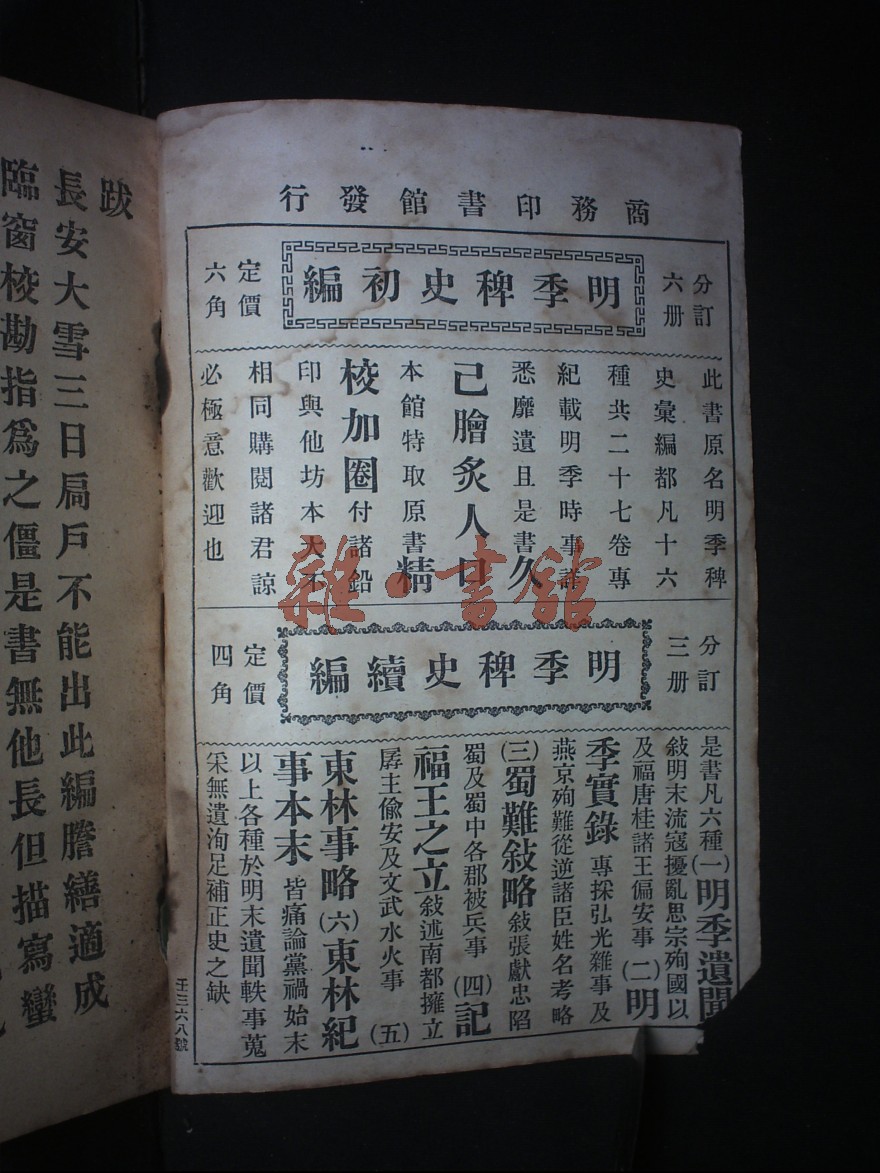 商務印書館發行
分訂六册
明季稗史初編
定價六角
此書原名明季稗
史彙編都凡十六
種共二十七卷專
紀載明季時事詳
悉靡遺且是書久
己膾炙人口
本館特取原書精
校加圈付諸鉛
印與他坊本大不
相同購閱諸君諒
必極意歡迎也
分訂三册
明季稗史續編
定價四角
是書凡六種(一)明季遺聞
敍明末流寇擾亂思宗殉國以
及福唐桂諸王偏安事(二)明
季實錄專採弘光雜事及
燕京殉難從逆諸臣姓名考略
(三)蜀難敍略敍張獻忠陷
蜀及蜀中各郡被兵事(四)記
福王之立敍述南都擁立
孱主偷安及文武水火事(五)
東林事略(六)東林紀
事本末皆痛論黨禍始末
以上各種於明末遺聞軼事蒐
采無遺洵足補正史之缺
壬三六八號
跋
長安大雪三日扃戶不能出此編謄繕適成
臨窗校勘指爲之僵是書無他長但描寫蠻
雜·書舘